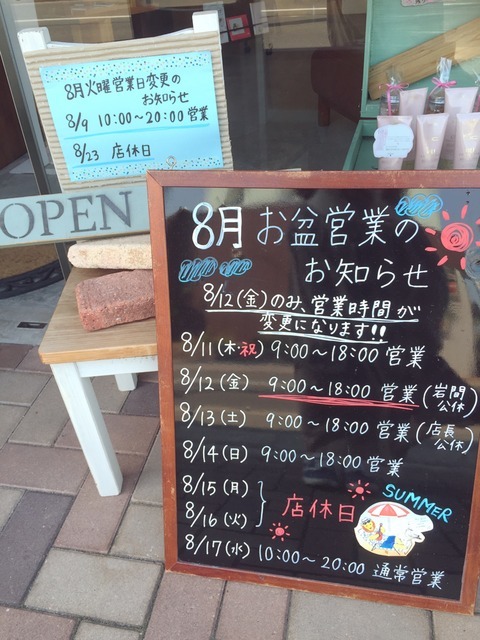 8月火曜営業日変更の
お知らせ
8/9 10:00〜20:00営業
8/23 店休日
OPEN
8月 お盆営業の
お知らせ
8/12(金)のみ、営業時間が
変更になります!!
8/11(木・祝) 9:00〜18:00 営業
8/12(金) 9:00〜18:00 営業(岩間公休)
8/13(土) 9:00〜18:00 営業(店長公休)
8/14(日) 9:00〜18:00 営業
8/15(月)
8/16(火)
店休日
SUMMER
8/17(水) 10:00〜20:00 通常営業